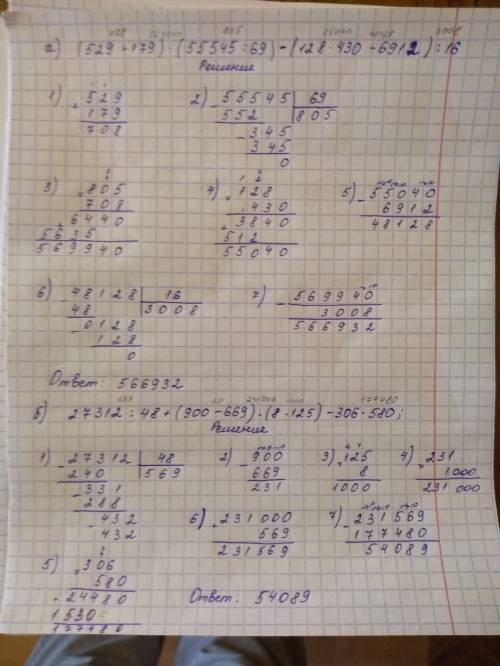 708 569940 805 55040 48128 3008
а) (529 + 179) · (55545 : 69) − (128 · 430 − 6912) : 16
Решение
1) + 529
179
708
2) − 55545 | 69
552 | 805
− 345
345
0
3) × 805
708
+ 6440
5635
569940
4) × 128
430
+ 3840
512
55040
5) − 55040
6912
48128
6) − 48128 | 16
48 | 3008
− 0128
128
0
7) − 569940
3008
566932
Ответ: 566932
569 231 231000 1000 177480
б) 27312 : 48 + (900 − 669) · (8 · 125) − 306 · 580;
Решение
1) − 27312 | 48
240 | 569
− 331
288
− 432
432
2) − 900
669
231
3) × 125
8
1000
4) × 231
1000
231 000
5) × 306
580
+ 24480
1530
177480
6) + 231000
569
231569
7) − 231569
177480
54089
Ответ: 54089